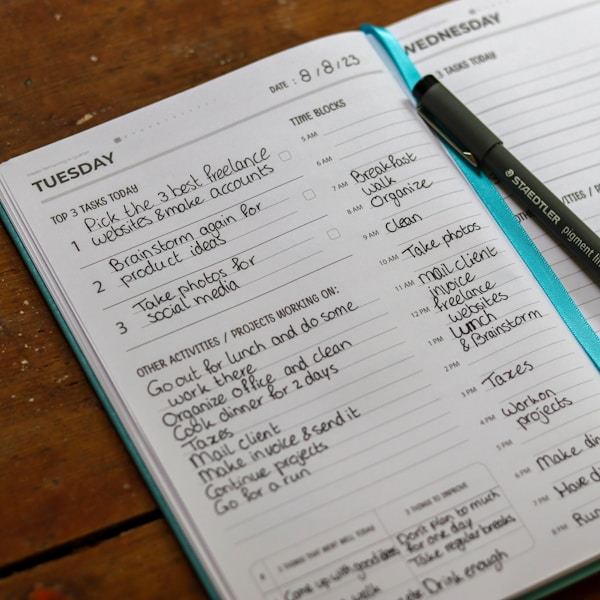 TUESDAY
DATE : 8/8/23
TOP 3 TASKS TODAY
1 Pick the 3 best freelance
websites & make accounts
2 Brainstorm again for
product ideas
3 Take photos for
social media
OTHER ACTIVITIES / PROJECTS WORKING ON:
Go out for lunch and do some
work there
Organize office and clean
Cook dinner for 2 days
Taxes
Mail client
Make invoice & send it
Continue projects
Go for a run
TIME BLOCKS
5 AM
6 AM
7 AM Breakfast
walk
8 AM Organize
9 AM clean
10 AM Take photos
11 AM Mail client
invoice
12 PM freelance
websites
1 PM Lunch
& Brainstorm
2 PM
3 PM Taxes
4 PM work on
projects
5 PM
6 PM Make
7 PM Have
8 PM Run
3 THINGS THAT WENT WELL TODAY
Came up with good
walk
3 THINGS TO IMPROVE
Don't plan to much
for one day
Take regular breaks
Drink enough
WEDNESDAY
3 TASKS TODAY
STAEDTLER
pigment